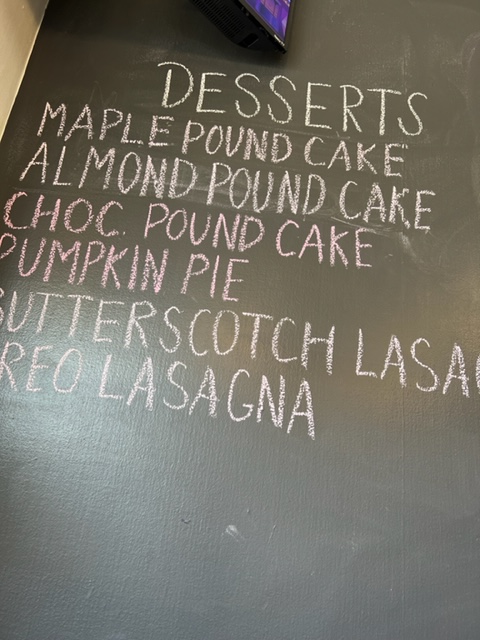 DESSERTS
MAPLE POUND CAKE
ALMOND POUND CAKE
CHOC. POUND CAKE
PUMPKIN PIE
BUTTERSCOTCH LASAG
REO LASAGNA